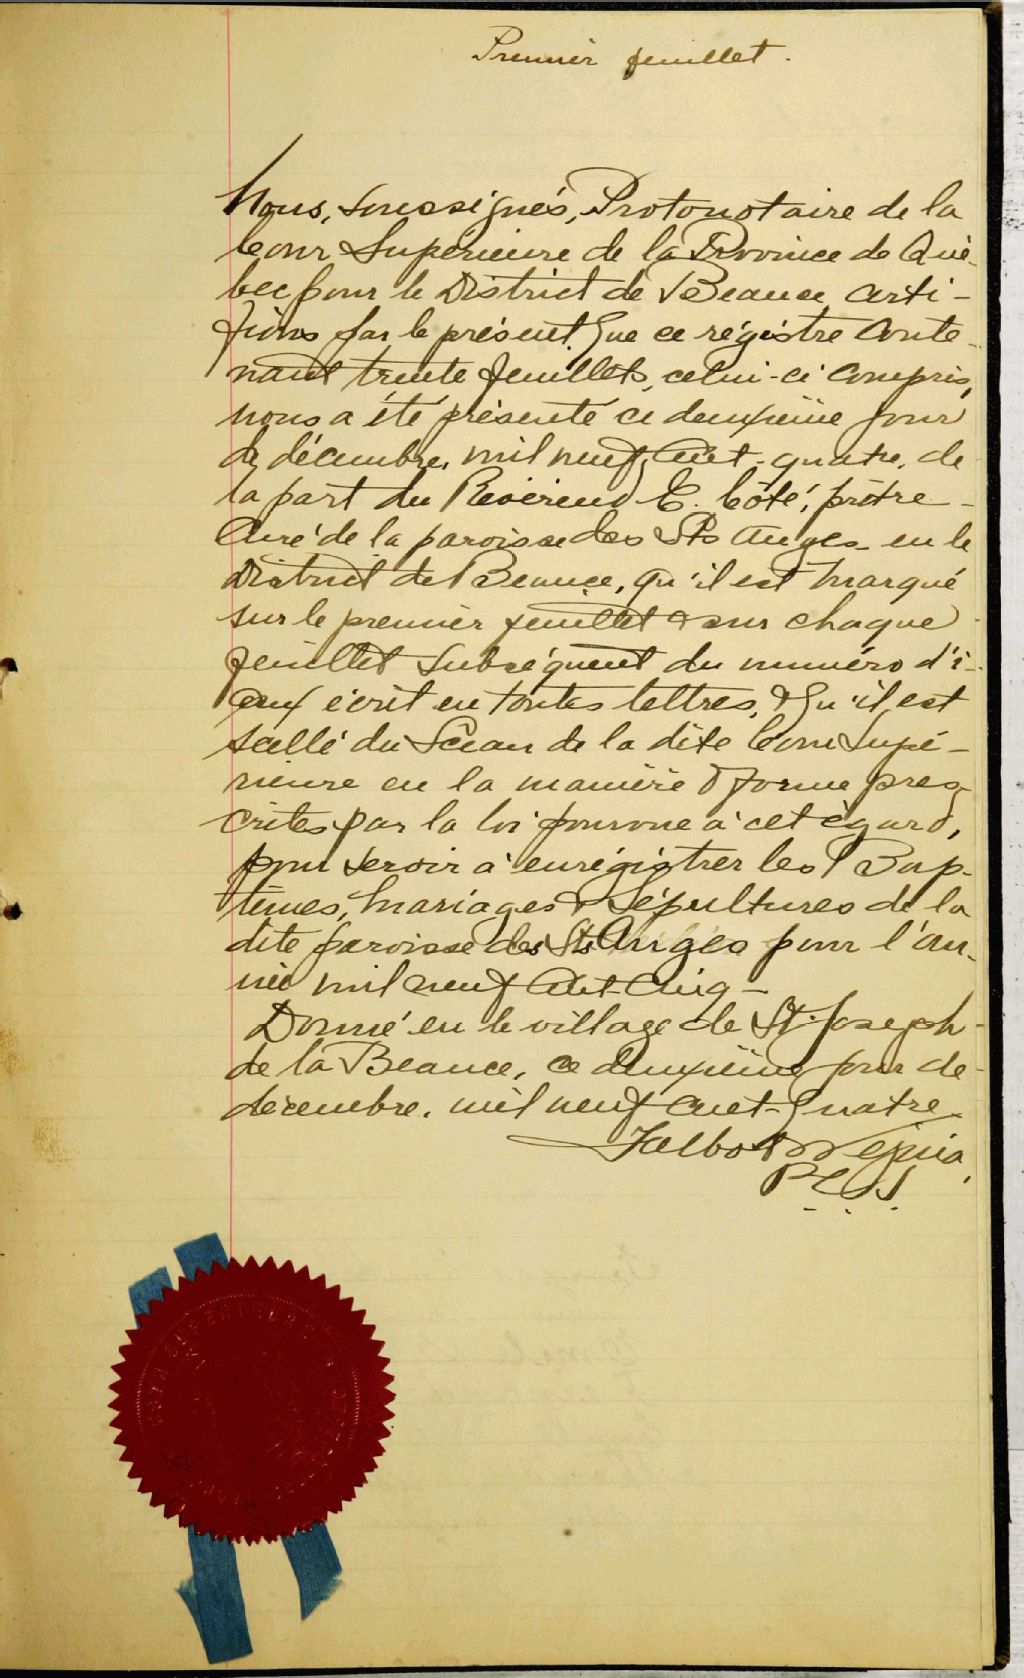 Premier feuillet.
Nous, soussignés, Protonotaire de la
Cour Supérieure de la Province de Qué-
bec pour le District de Beauce, certi-
fions par le présent que ce régistre conte-
nant trente feuillets, celui-ci compris,
nous a été présenté ce deuxième jour
de décembre, mil neuf cent-quatre, de
la part du Révérend E. Côté, prêtre-
Curé de la paroisse des Sts Anges en le
District de Beauce, qu'il est marqué
sur le premier feuillet & sur chaque
feuillet subséquent du numéro d'i-
ceux écrit en toutes lettres, & qu'il est
scellé du Sceau de la dite Cour Supé-
rieure en la manière & forme pres-
crites par la loi pourvue à cet égard,
pour servir à enrégistrer les Bap-
têmes, Mariages & Sépultures de la
dite paroisse des Sts Anges pour l'an-
née mil neuf cent-cinq-
Donné en le village de St-Joseph-
de la Beauce, ce deuxième jour de
décembre, mil neuf cent-quatre.
Talbot & Vézina,
P.C.S.
COUR SUPERIEURE